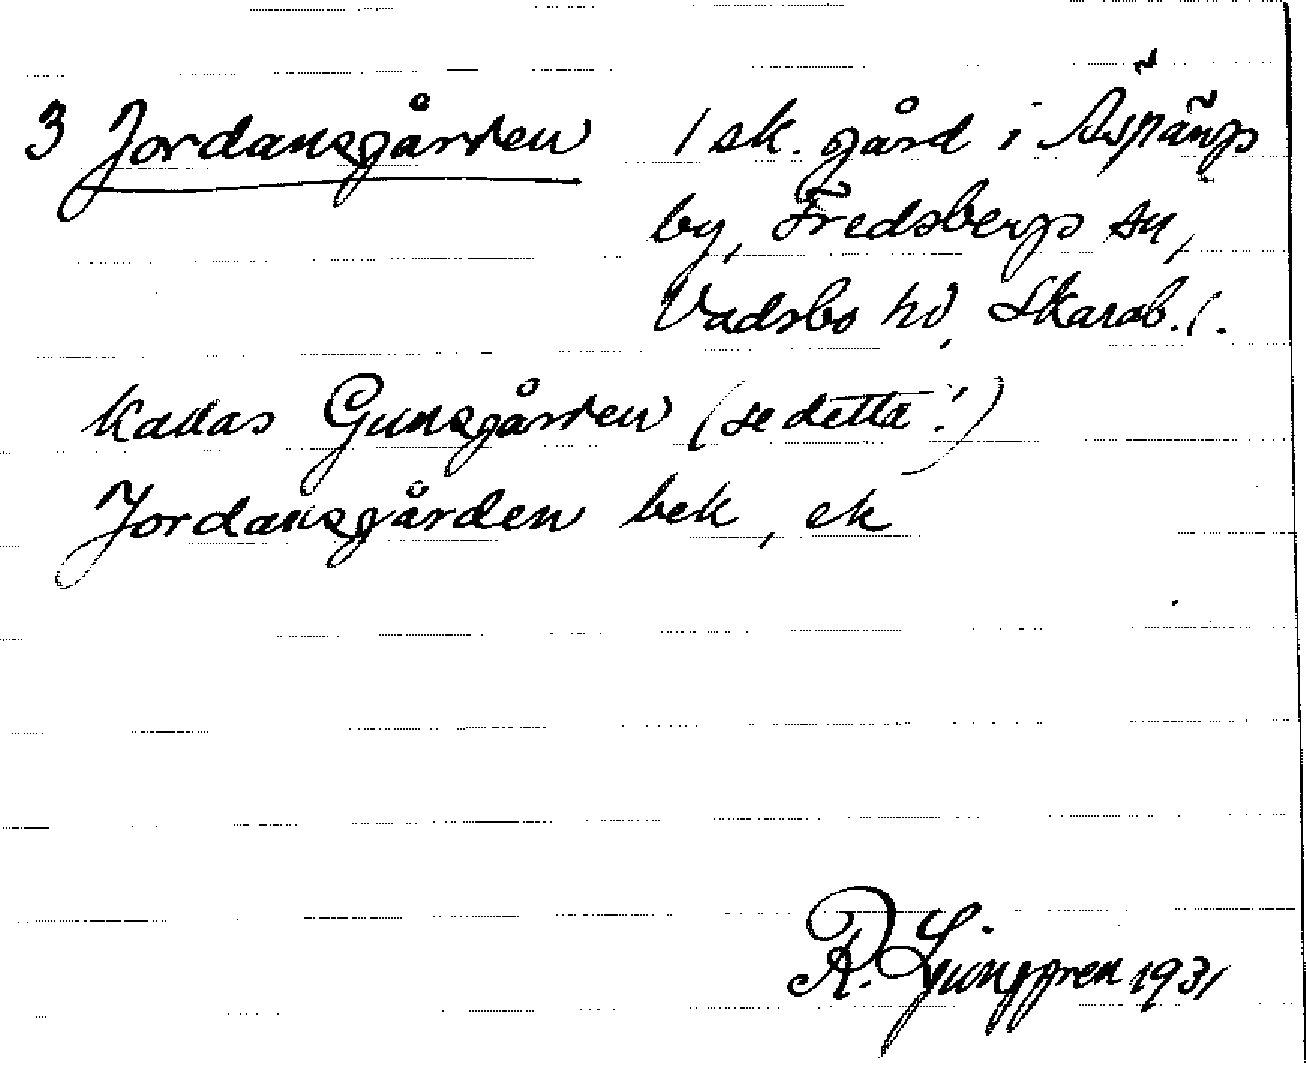 3 Jordansgården 1 sk. gård i
by, Fredsbergs sn,
Vadsbo hd, Skarab. l.
Kallas Gunsgården (se detta!)
Jordansgården bek, ek
R. Ljunggren 1931